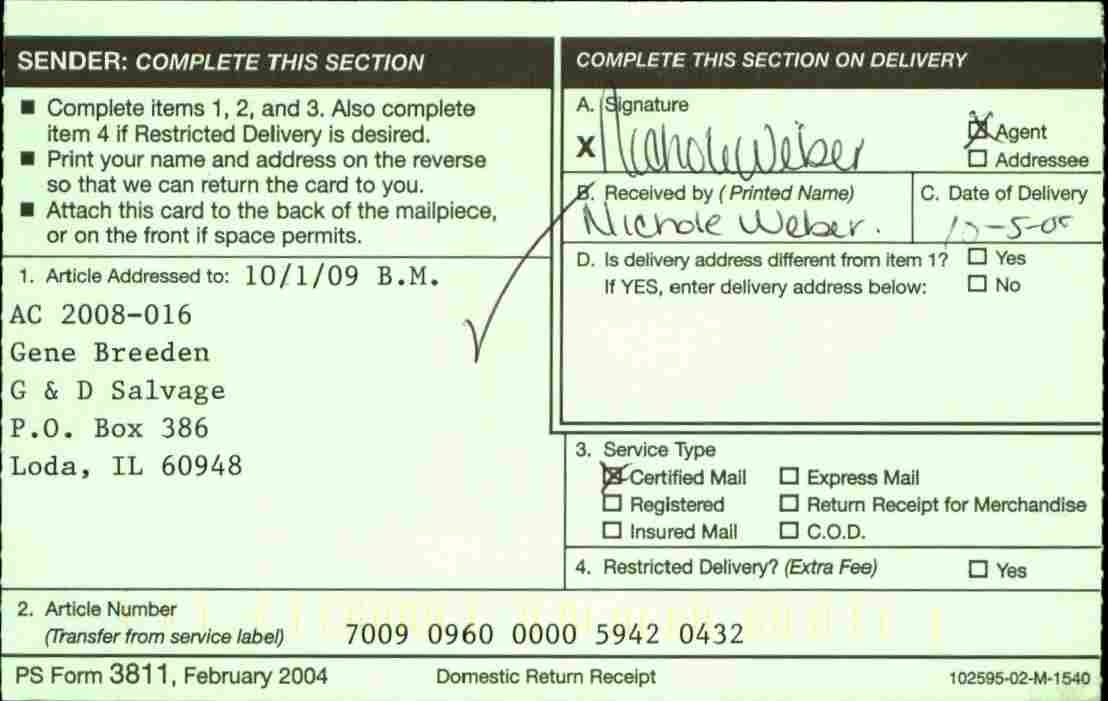 SENDER: COMPLETE THIS SECTION
■ Complete items 1, 2, and 3. Also complete
item 4 if Restricted Delivery is desired.
■ Print your name and address on the reverse
so that we can return the card to you.
■ Attach this card to the back of the mailpiece,
or on the front if space permits.
1. Article Addressed to: 10/1/09 B.M.
AC 2008-016
Gene Breeden
G & D Salvage
P.O. Box 386
Loda, IL 60948
COMPLETE THIS SECTION ON DELIVERY
A. Signature
X Nichole Weber
Agent
Addressee
B. Received by (Printed Name)
Nichole Weber.
C. Date of Delivery
D. Is delivery address different from item 1? Yes
If YES, enter delivery address below: No
3. Service Type
Certified Mail Express Mail
Registered Return Receipt for Merchandise
Insured Mail C.O.D.
4. Restricted Delivery? (Extra Fee) Yes
2. Article Number
(Transfer from service label) 7009 0960 0000 5942 0432
PS Form 3811, February 2004 Domestic Return Receipt 102595-02-M-1540